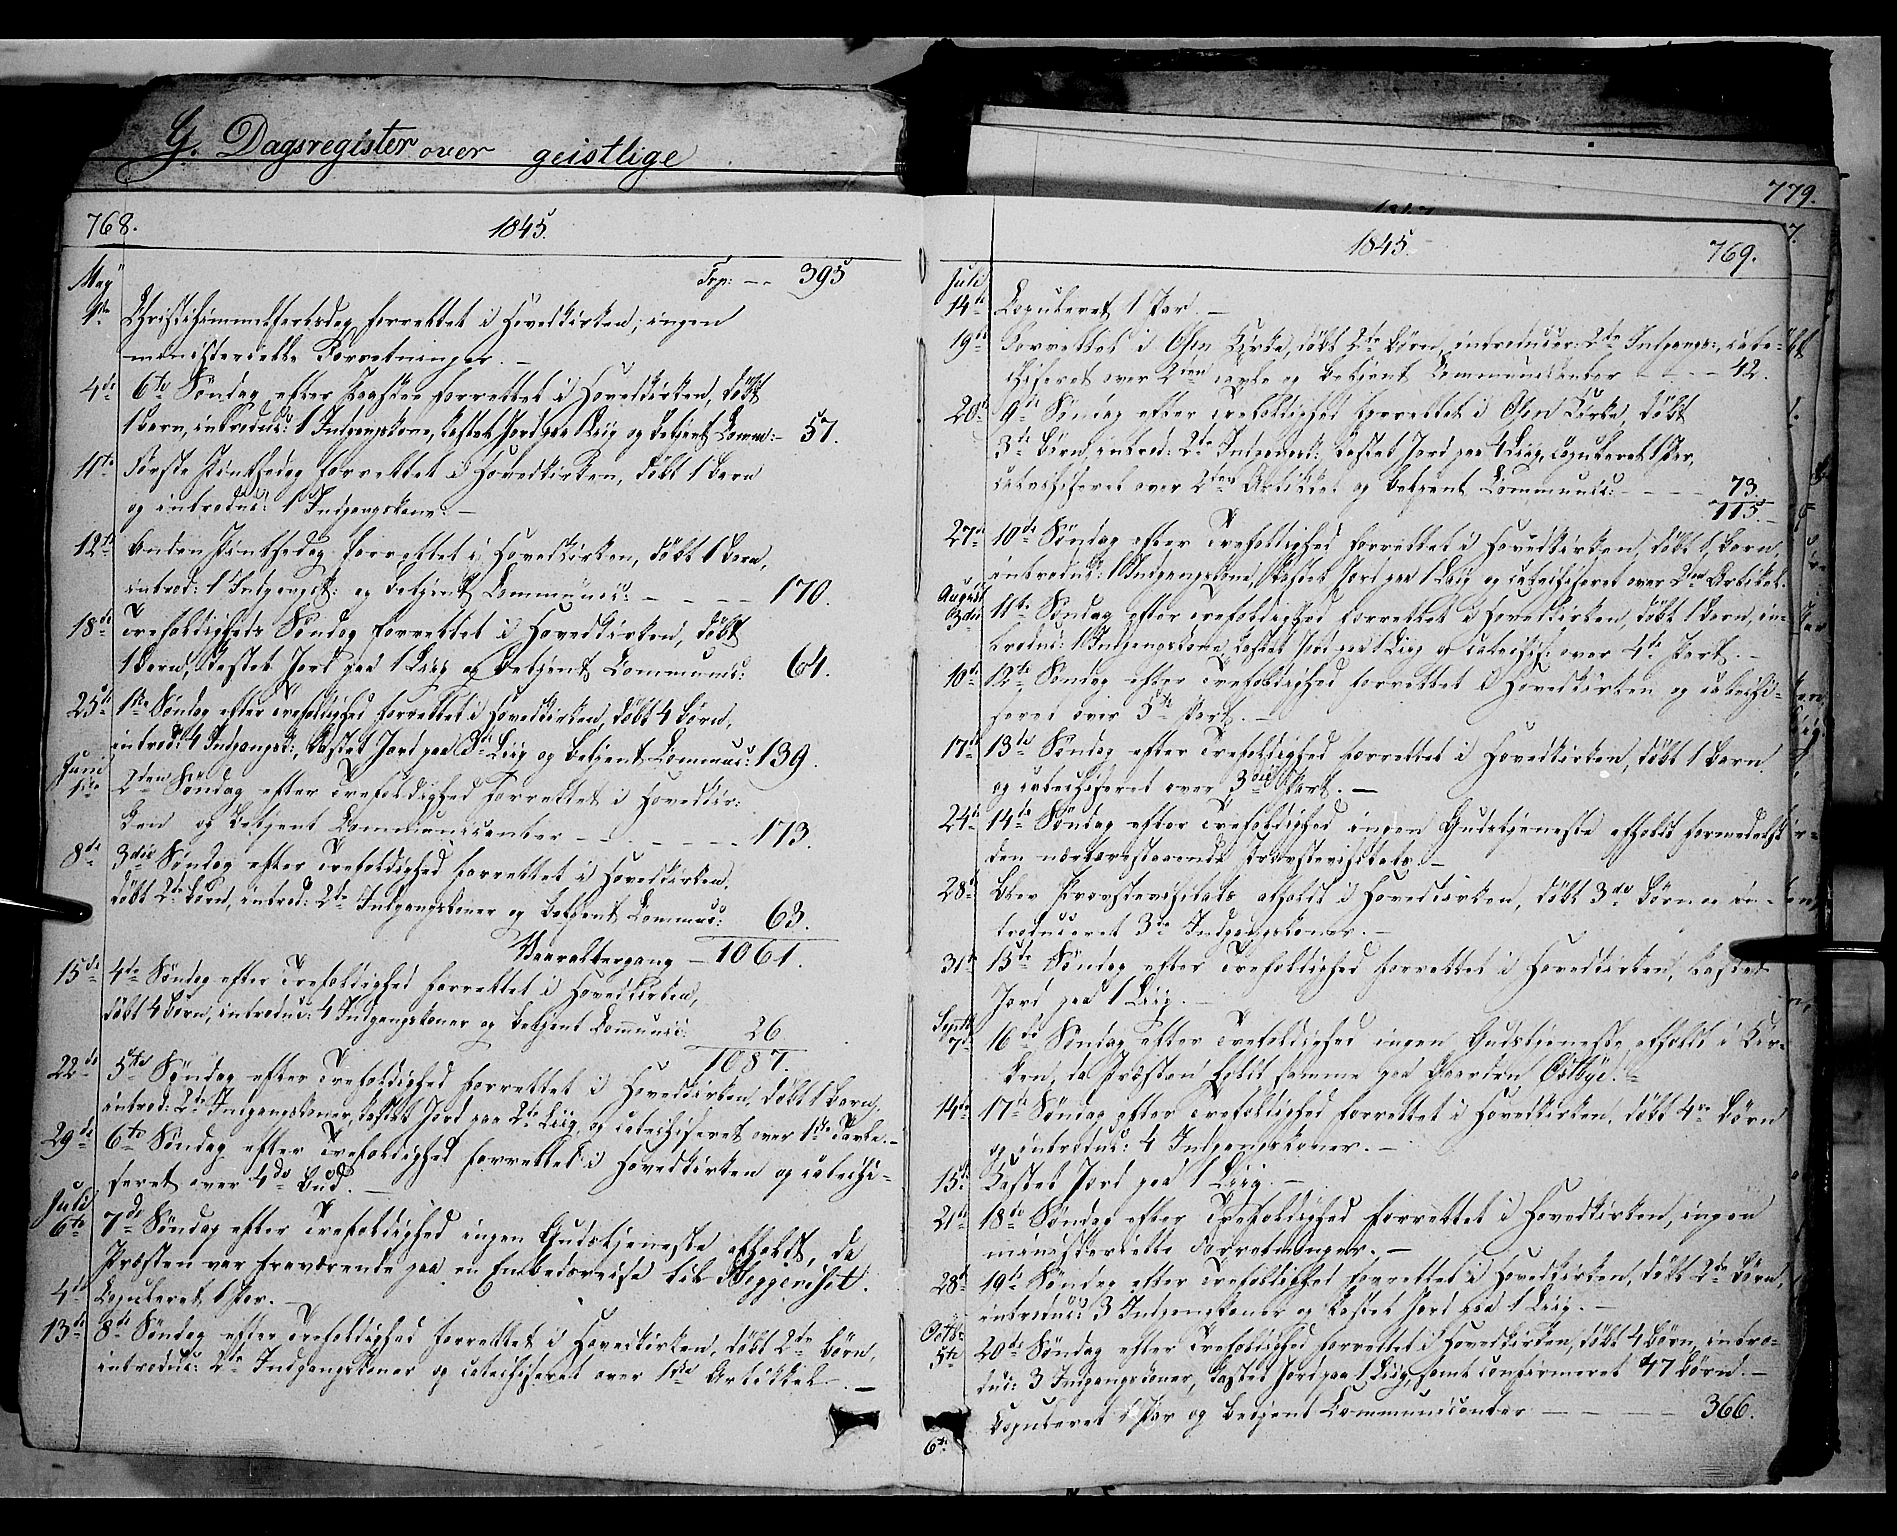 G. Dagsregister over geistlige
768. 1845.
May Trp: -- 395
1ste Christihimmelfartsdag forrettet i Hovedkirken; ingen
ministerielle Forretninger. -
4de 6te Søndag efter Paaske forrettet i Hovedkirken, døbt
1 Barn, introduc: 1 Indgangskone, kastet Jord paa 1 Liig og betjent Comm: - 57.
11te Første Pintsedag forrettet i Hovedkirken, døbt 1 Barn
og introduc: 1 Indgangskone. -
12te Anden Pintsedag forrettet i Hovedkirken, døbt 1 Barn,
introd: 1 Indgangsk: og betjent Communic: - - - - 170.
18de Trefoldigheds Søndag forrettet i Hovedkirken, døbt
1 Barn, kastet Jord paa 1 Liig og betjent Communic: 64.
25de 1ste Søndag efter Trefoldighed forrettet i Hovedkirken, døbt 4 Børn,
introd: 4 Indgangsk:, kastet Jord paa 3de Liig og betjent Communic: 139.
Juni
1ste 2den Søndag efter Trefoldighed forrettet i Hovedkir-
ken og betjent Communicanter - - - - - - 173.
8de 3die Søndag efter Trefoldighed forrettet i Hovedkirken,
døbt 2de Børn, introd: 2de Indgangskoner og betjent Communic: 63.
Vaaraltergang - 1061.
15de 4de Søndag efter Trefoldighed forrettet i Hovedkirken,
døbt 4 Børn, introduc: 4 Indgangskoner og betjent Communic: 26
1087.
22de 5te Søndag efter Trefoldighed forrettet i Hovedkirken, døbt 1 Barn,
introd: 2de Indgangskoner, kastet Jord paa 2de Liig og catechiseret over 1ste Tavle. -
29de 6te Søndag efter Trefoldighed forrettet i Hovedkirken og catechi-
seret over 4de Bud. -
Juli
6te 7de Søndag efter Trefoldighed ingen Gudstjeneste afholdt, da
Præsten var fraværende paa en Embedsreise til
4de Copuleret 1 Par. -
13de 8de Søndag efter Trefoldighed forrettet i Hovedkirken, døbt 2de Børn,
introduc: 2de Indgangskoner og catechiseret over 1ste Artikkel. -
779.
1847
7.
1845. 769.
Juli
14de Copuleret 1 Par. -
19de Forrettet i Osen Kirke, døbt 2de Børn, introducer: 2de Indgangs:, cate-
chiseret over 2den Tavle og betjent Communicanter - - - 42.
20de 9de Søndag efter Trefoldighed forrettet i Osen Kirke, døbt
3de Børn, introd: 2de Indgangsk:, kastet Jord paa 4 Liig, copuleret 1 Par,
catechiseret over 2den Artikkel og betjent Communic: - - - - 73.
115.
27de 10de Søndag efter Trefoldighed forrettet i Hovedkirken, døbt 1 Barn,
introduc: 1 Indgangskone, kastet Jord paa 1 Liig og catechiseret over 2den Artikel.
August
3die 11te Søndag efter Trefoldighed forrettet i Hovedkirken, døbt 1 Barn, in-
troduc: 1 Indgangskone, kastet Jord paa 1 Liig og catechis: over 4de Part. -
10de 12te Søndag efter Trefoldighed forrettet i Hovedkirken og catechi-
seret over 5te Part. -
17de 13de Søndag efter Trefoldighed forrettet i Hovedkirken, døbt 1 Barn
og catechiseret over 3die Part. -
24de 14de Søndag efter Trefoldighed ingen Gudstjeneste afholdt formedelst
den nærværestaaende Provstevisitats. -
28de Blev Provstevisitats afholdt i Hovedkirken, døbt 3de Børn og in-
troduceret 3de Indgangskoner. -
31te 15de Søndag efter Trefoldighed forrettet i Hovedkirken, kastet
Jord paa 1 Liig. -
Septbr
7de 16de Søndag efter Trefoldighed ingen Gudstjeneste afholdt i Kir-
ken, da Præsten holdt samme paa Gaarden Østbye. -
14de 17de Søndag efter Trefoldighed forrettet i Hovedkirken, døbt 4re Børn
og introduc: 4 Indgangskoner. -
15de Kastet Jord paa 1 Liig. -
21de 18de Søndag efter Trefoldighed forrettet i Hovedkirken, ingen
ministerielle Forretninger. -
28de 19de Søndag efter Trefoldighed forrettet i Hovedkirken, døbt 2de Børn,
introduc: 3 Indgangskoner og kastet Jord paa 1 Liig. -
Octbr
5te 20de Søndag efter Trefoldighed forrettet i Hovedkirken, døbt 4 Børn, intro-
duc: 3 Indgangskoner, kastet Jord paa 1 Liig, samt confirmeret 47 Børn. -
Copuleret 1 Par og betjent Communicanter - - - - 366.
6te